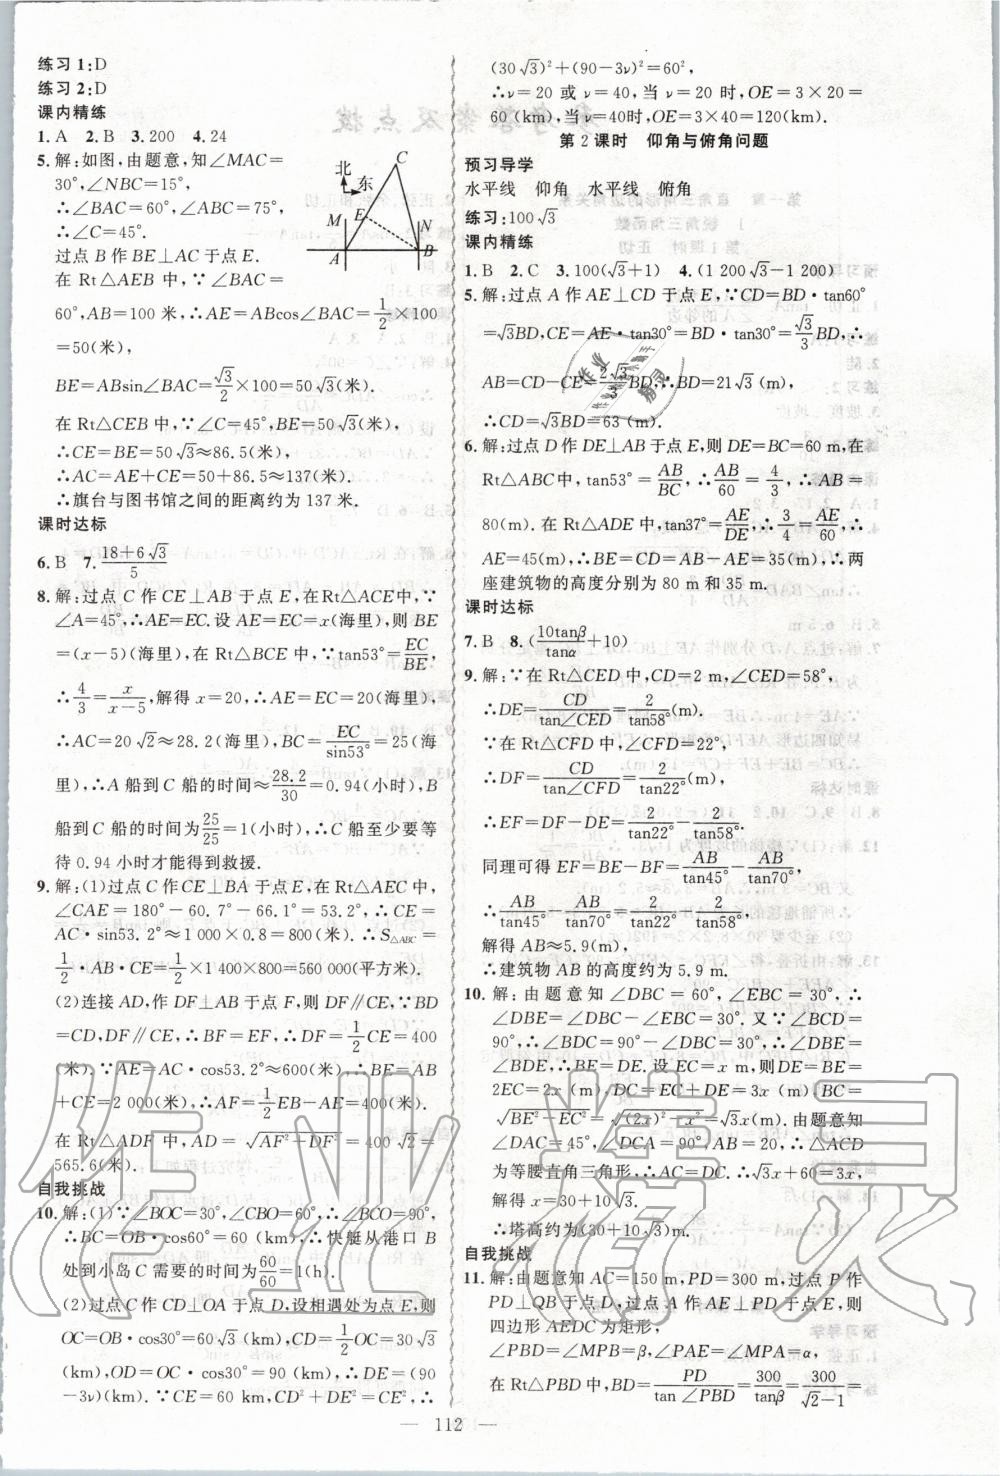 练习 1:D
练习 2:D
课内精练
1. A 2. B 3. 200 4. 24
5. 解:如图,由题意,知∠MAC=
30°,∠NBC=15°,
∴∠BAC=60°,∠ABC=75°,
∴∠C=45°.
过点 B 作 BE⊥AC 于点 E.
在 Rt△AEB 中,∵∠BAC=
60°,AB=100 米,∴AE=ABcos∠BAC=1/2×100
=50(米),
BE=ABsin∠BAC=√3/2×100=50√3(米).
在 Rt△CEB 中,∵∠C=45°,
∴CE=BE=50√3≈86.5(米),
∴AC=AE+CE=50+86.5≈137(米).
∴旗台与图书馆之间的距离约为 137 米.
北
东
C
E
M
N
A
B
课时达标
6. B 7. (18+6√3)/5
8. 解:过点 C 作 CE⊥AB 于点 E,在 Rt△ACE 中,∵
∠A=45°,∴AE=EC.设 AE=EC=x(海里),则 BE
=(x-5)(海里).在 Rt△BCE 中,∵tan53°=EC/BE,
∴4/3=x/(x-5),解得 x=20,∴AE=EC=20(海里),
∴AC=20√2≈28.2(海里),BC=EC/sin53°=25(海
里),∴A 船到 C 船的时间≈28.2/30=0.94(小时),B
船到 C 船的时间为25/25=1(小时),∴C 船至少要等
待 0.94 小时才能得到救援.
9. 解:(1)过点 C 作 CE⊥BA 于点 E,在 Rt△AEC 中,
∠CAE=180°-60.7°-66.1°=53.2°,∴CE=
AC·sin53.2°≈1 000×0.8=800(米).∴S△ABC=
1/2·AB·CE=1/2×1 400×800=560 000(平方米).
(2)连接 AD,作 DF⊥AB 于点 F,则 DF∥CE,∵BD
=CD,DF∥CE,∴BF=EF,∴DF=1/2CE=400
(米).∵AE=AC·cos53.2°≈600(米),∴BE=AB
+AE=2 000(米),∴AF=1/2EB-AE=400(米).
在 Rt△ADF 中,AD=√(AF²+DF²)=400√2=
565.6(米).
自我挑战
10. 解:(1)∵∠BOC=30°,∠CBO=60°,∴∠BCO=90°,
∴BC=OB·cos60°=60(km),∴快艇从港口 B
处到小岛 C 需要的时间为60/60=1(h).
(2)过点 C 作 CD⊥OA 于点 D,设相遇处为点 E,则
OC=OB·cos30°=60√3(km),CD=1/2OC=30√3
(km),OD=OC·cos30°=90(km),DE=(90
-3v)(km).∵CE=60 km,CD²+DE²=CE²,∴
(30√3)²+(90-3v)²=60²,
∴v=20 或 v=40,当 v=20 时,OE=3×20=
60(km),当 v=40时,OE=3×40=120(km).
第 2 课时 仰角与俯角问题
预习导学
水平线 仰角 水平线 俯角
练习:100√3
课内精练
1. B 2. C 3. 100(√3+1) 4. (1 200√3-1 200)
5. 解:过点 A 作 AE⊥CD 于点 E,∵CD=BD·tan60°
=√3BD,CE=AE·tan30°=BD·tan30°=√3/3BD,∴
AB=CD-CE=2√3/3BD,∴BD=21√3(m),
∴CD=√3BD=63(m).
6. 解:过点 D 作 DE⊥AB 于点 E,则 DE=BC=60 m,在
Rt△ABC 中,tan53°=AB/BC,∴AB/60=4/3,∴AB=
80(m).在 Rt△ADE 中,tan37°=AE/DE,∴3/4=AE/60,∴
AE=45(m),∴BE=CD=AB-AE=35(m).∴两
座建筑物的高度分别为 80 m 和 35 m.
课时达标
7. B 8. (10tanβ/tanα+10)
9. 解:∵在 Rt△CED 中,CD=2 m,∠CED=58°,
∴DE=CD/tan∠CED=2/tan58°(m).
∵在 Rt△CFD 中,∠CFD=22°,
∴DF=CD/tan∠CFD=2/tan22°(m),
∴EF=DF-DE=2/tan22°-2/tan58°.
同理可得 EF=BE-BF=AB/tan45°-AB/tan70°,
∴AB/tan45°-AB/tan70°=2/tan22°-2/tan58°.
解得 AB≈5.9(m).
∴建筑物 AB 的高度约为 5.9 m.
10. 解:由题意知∠DBC=60°,∠EBC=30°,∴
∠DBE=∠DBC-∠EBC=30°.又∵∠BCD=
90°,∴∠BDC=90°-∠DBC=30°,∴∠DBE=
∠BDE,∴BE=DE.设 EC=x m,则 DE=BE=
2EC=2x(m),DC=EC+DE=3x(m),BC=
√(BE²-EC²)=√((2x)²-x²)=√3x(m).由题意知
∠DAC=45°,∠DCA=90°,AB=20 m,∴△ACD
为等腰直角三角形,∴AC=DC.∴√3x+60=3x,
解得 x=30+10√3.
∴塔高约为(30+10√3)m.
自我挑战
11. 解:由题意知 AC=150 m,PD=300 m,过点 P 作
PD⊥QB 于点 D,过点 A 作 AE⊥PD 于点 E,则
四边形 AEDC 为矩形,
∠PBD=∠MPB=β,∠PAE=∠MPA=α,
在 Rt△PBD 中,BD=PD/tan∠PBD=300/tanβ=300/(√2-1)
— 112 —
作业精灵